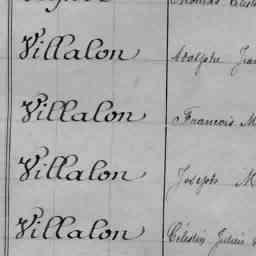 Villalon Adolphe
Villalon François M
Villalon Joseph M
Villalon Célestin Julien